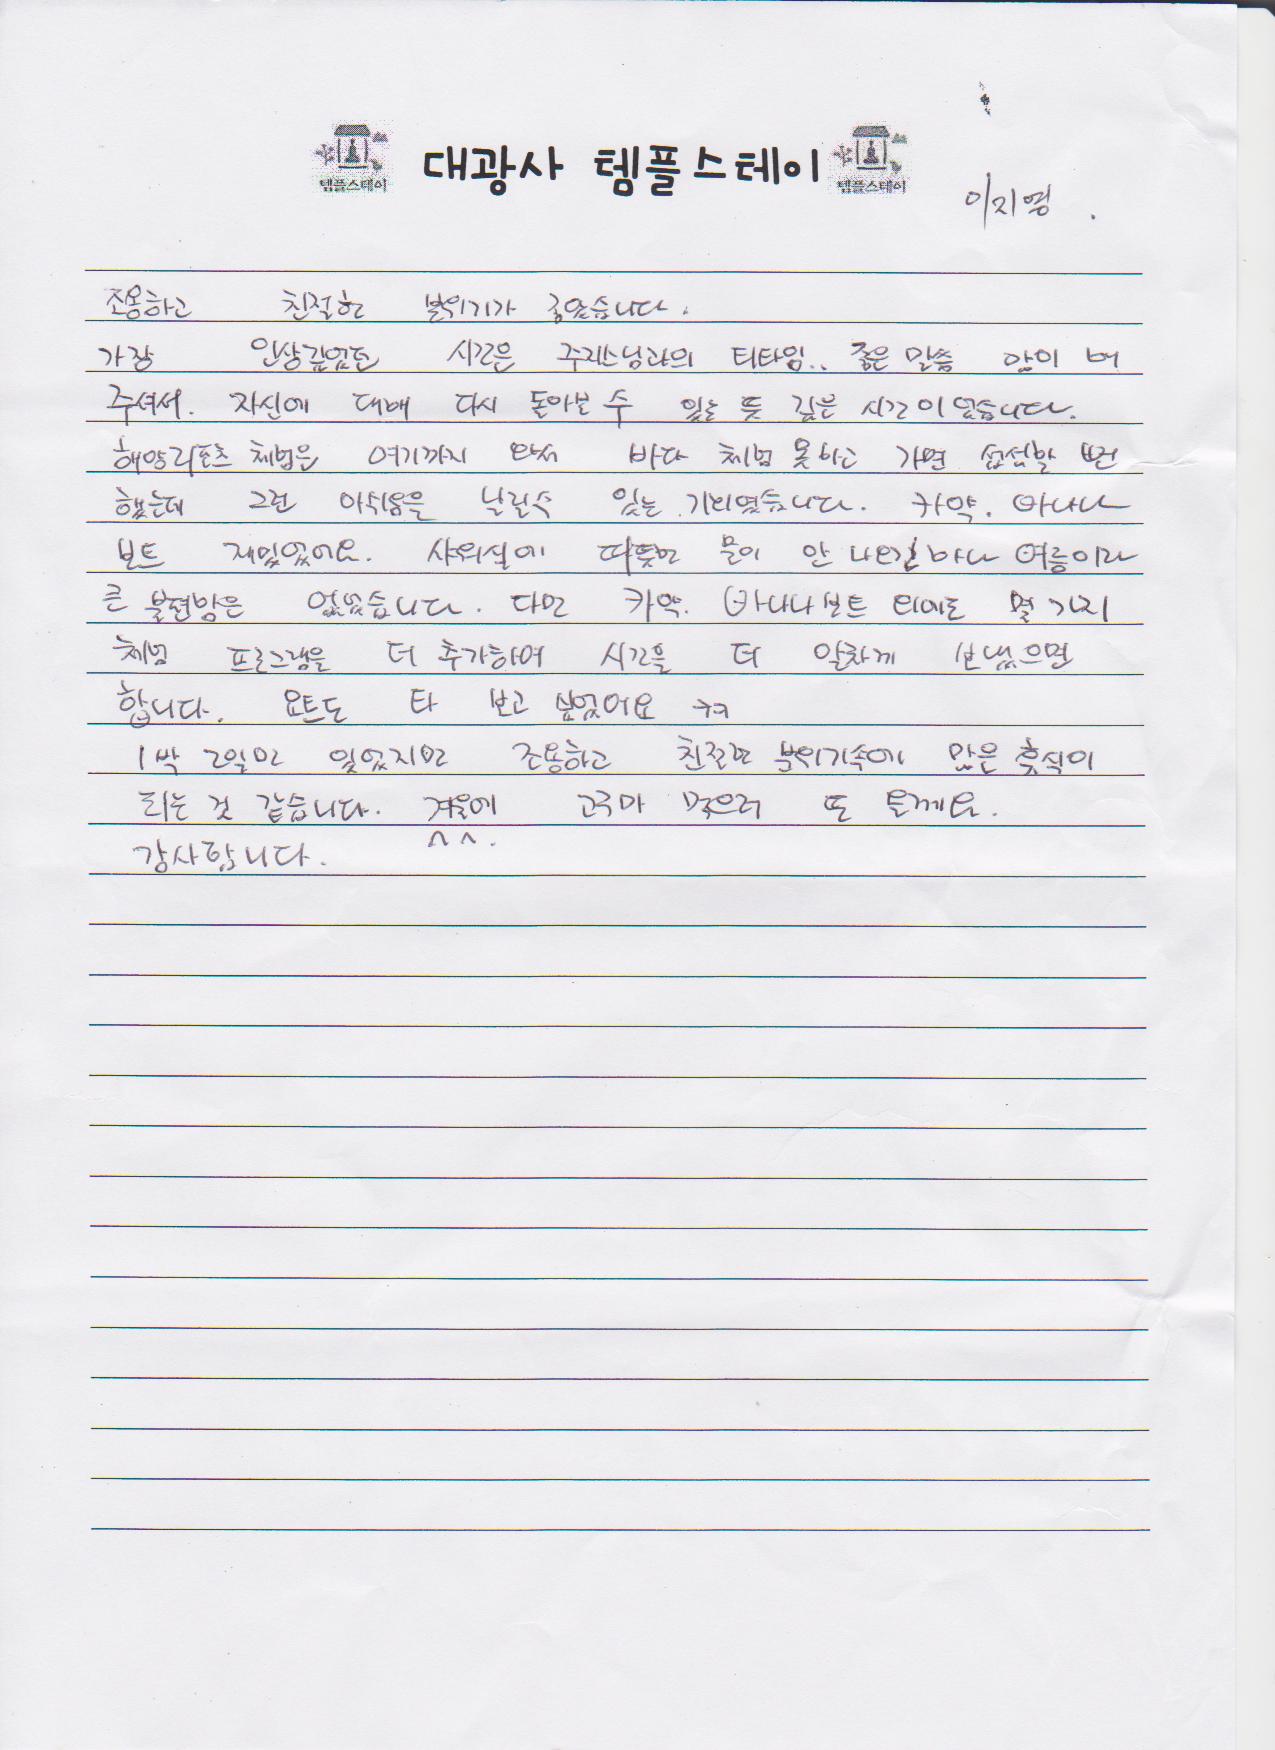 템플스테이
대광사 템플스테이
템플스테이
이지영.
조용하고 친절한 분위기가 좋았습니다.
가장 인상깊었던 시간은 주지스님과의 티타임.. 좋은 말씀 많이 해
주셔서. 자신에 대해 다시 돌아본 수 있는 뜻 깊은 시간이었습니다.
해양리포츠 체험은 여기까지 와서 바다 체험 못하고 가면 섭섭할 뻔
했는데 그런 아쉬움을 날릴수 있는 기회였습니다. 카약. 바나나
보트 재밌었어요. 샤워실에 따뜻한 물이 안 나오긴 하나 여름이라
큰 불편함은 없었습니다. 다만 카약. 바나나보트 외에도 몇 가지
체험 프로그램을 더 추가하여 시간을 더 알차게 보냈으면
합니다. 요트도 타 보고 싶었어요 ㅋㅋ
1박 2일만 있었지만 조용하고 친절한 분위기속에 많은 휴식이
되는 것 같습니다. 겨울에 고구마 먹으러 또 올께요.
^^.
감사합니다.